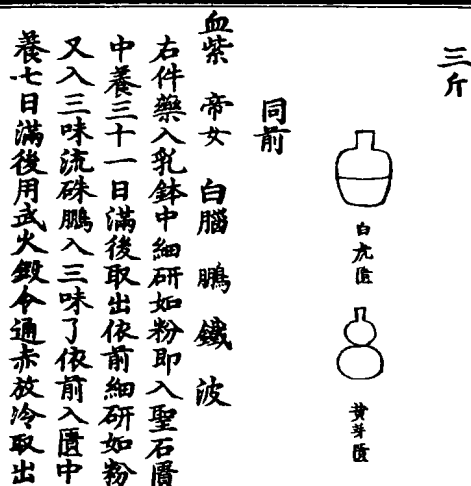 三斤
白虎匱
黄芽匱
同前
血紫　帝女　白腦　鵬　鐵　波
右件藥入乳鉢中細研如粉即入聖石匱
中養三十一日滿後取出依前細研如粉
又入三味流硃鵬入三味了依前入匱中
養七日滿後用武火煅令通赤放冷取出